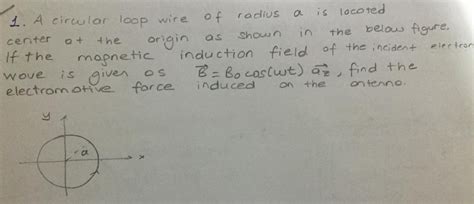 1. A circular loop wire of radius a is located
center at the origin as shown in the below figure.
If the magnetic induction field of the incident electron
wave is given as B⃗ = B₀ cos(ωt) a⃗z, find the
electromotive force induced on the antenna.
y
a
x